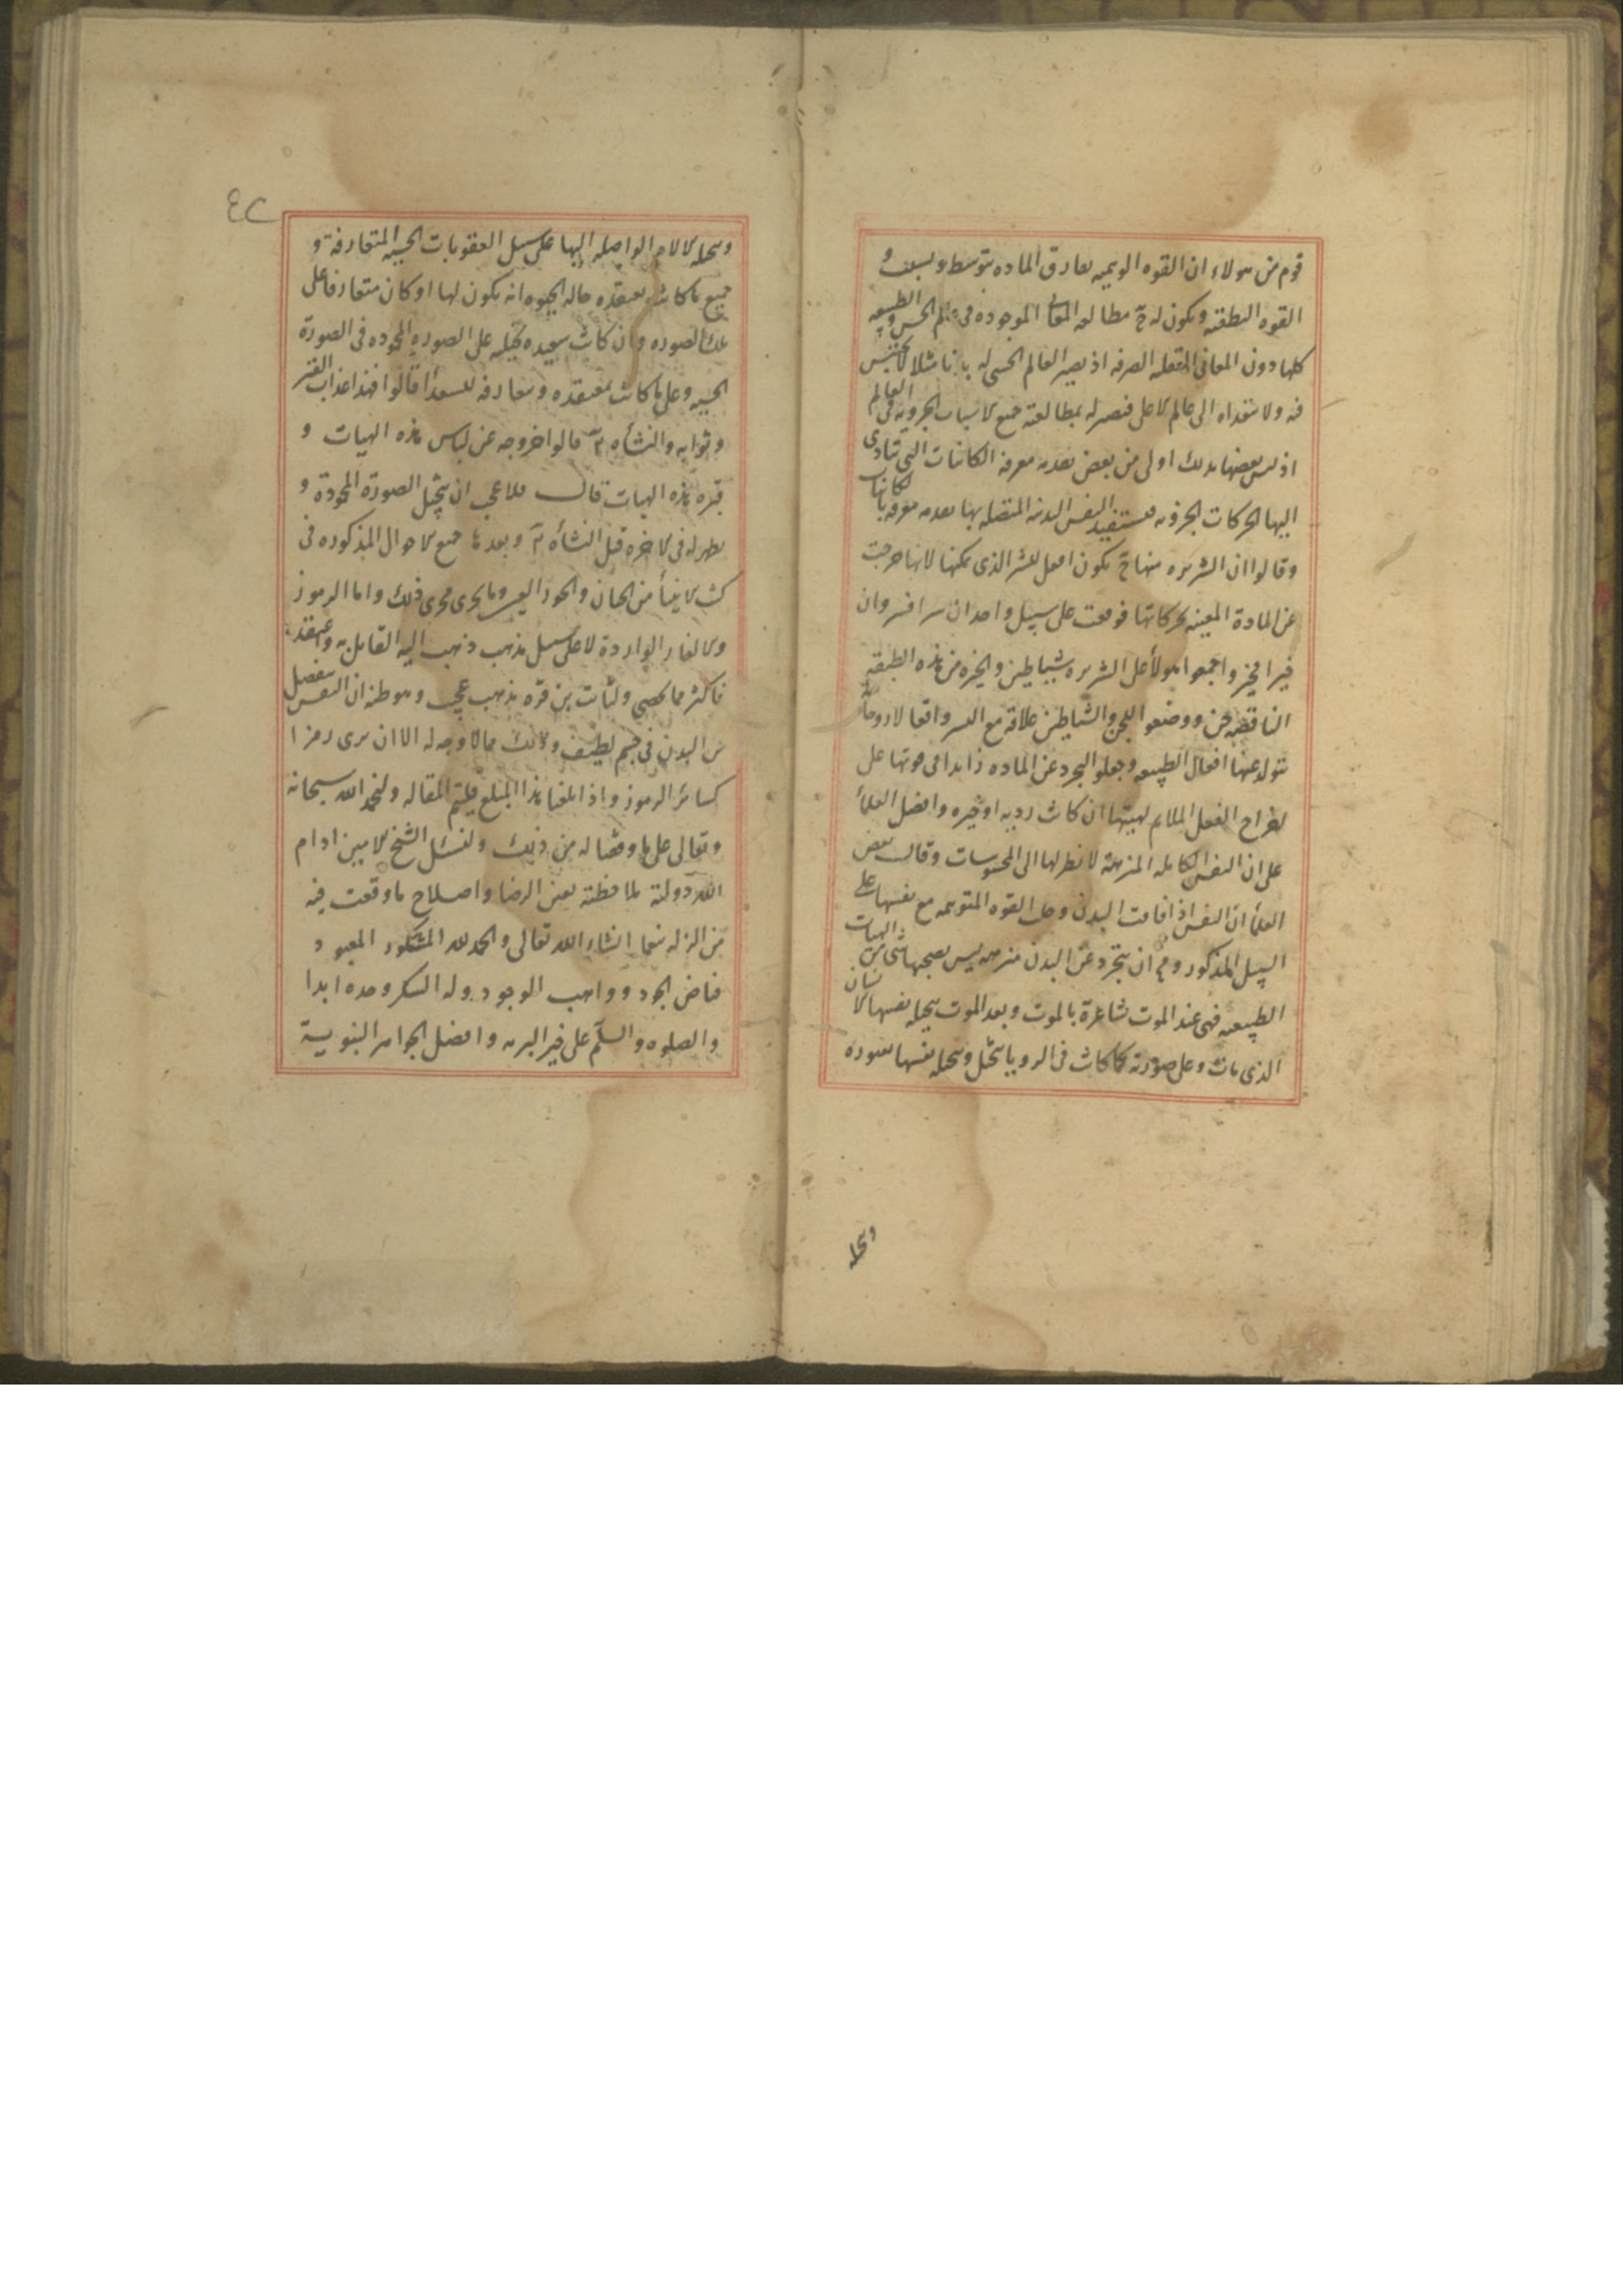 قوم من هولاء ان القوه الوهميه تفارق الماده بتوسط و
القوه النطقيه ويكون له ح مطالعه المعانى الموجوده فى عالم الحس والطبيعه
كلها دون المعانى العقليه الصرفه اذ يصير العالم الحسى له
فيه ولا يتعداه الى عالم الاعلى فيصير له بمطالعته جميع الاسباب الجزويه فى العالم
اذ ليس بعضها بذلك اولى من بعض بعدم معرفه الكائنات التى تتادى
اليها الحركات الجزويه فيستفيد النفس البدنيه المتصله بها
وقالوا ان الشريره منها ح يكون افعل للشر الذى يمكنها لانها خرجت
عن المادة المعينه بحركاتها فوقعت على سبيل واحد ان شرا فشر وان
خيرا فخير واجمع هولأ على الشريره شياطين والخيره من هذه الطبقه
الناقصه جن ووضعوا للجن والشياطين علاقه مع البشر وافعالا روحانيه
يتولد عنها افعال الطبيعه وجعلوا التجرد عن الماده زايدا فى قوتها على
اخراج الفعل الملايم لهيتها ان كانت رديه او خيره وافضل العلمأ
على ان النفس الكامله المنزهة لا نظر لها الى المحسوسات وقال بعض
العلمأ ان النفس اذا فارقت البدن وحملت القوه المتوهمه مع نفسها على
السبيل المذكور و ان يتجرد عن البدن منزهه ليس يصحبها شى من الهيات
الطبيعيه فهى عند الموت شاعرة بالموت وبعد الموت يتخيله نفسها الانسان
الذى مات وعلى صورته كما كانت فى الرويا تتخيل وتتخيله نفسها مقبوره
وتتخيله
٤٢
وتتخيله الالام الواصله اليها على سبيل العقوبات الحسيه المتعارفة و
جميع ما كانت تعتقده حاله الحيوه انه يكون لها او كان متعارفا على
تلك الصوره وان كانت سعيده تخيله على الصوره المحموده فى الصورة
الحسيه وعلى ما كانت تعتقده ومتعارفه للسعدأ قالوا فهذا عذاب القبر
وثوابه والنشأه الثانيه قالوا خروجه عن لباس هذه الهيات و
قبره هذه الهيات قال فلا عجب ان يتخيل الصورة المحمودة و
يظهر له فى الاخره قبل النشأه الثانيه وبعدها جميع الاحوال المذكوره فى
كتب الانبيأ من الجنان والحور العين وما يجرى مجرى ذلك واما الرموز
والالغاز الواردة لا على سبيل مذهب ذهب اليه القايل به واعتقده
فاكثر مما يحصى ولثابت بن قره مذهب عجيب وهو ظنه ان النفس تنفصل
من البدن فى جسم لطيف وذلك مما لا وجه له الا ان يرى رمزا
كسائر الرموز واذ بلغنا هذا المبلغ فلنختم المقاله ولنحمد الله سبحانه
وتعالى على ما وفقنا له من ذلك ولنسئل الشيخ الامين ادام
الله دولته ملاحظته بعين الرضا واصلاح ما وقعت فيه
من الزله منعما انشاء الله تعالى والحمد لله المشكور المعبود
فياض الجود وواهب الوجود وله الشكر وحده ابدا
والصلوه والسلم على خير البريه وافضل الجواهر النبوية